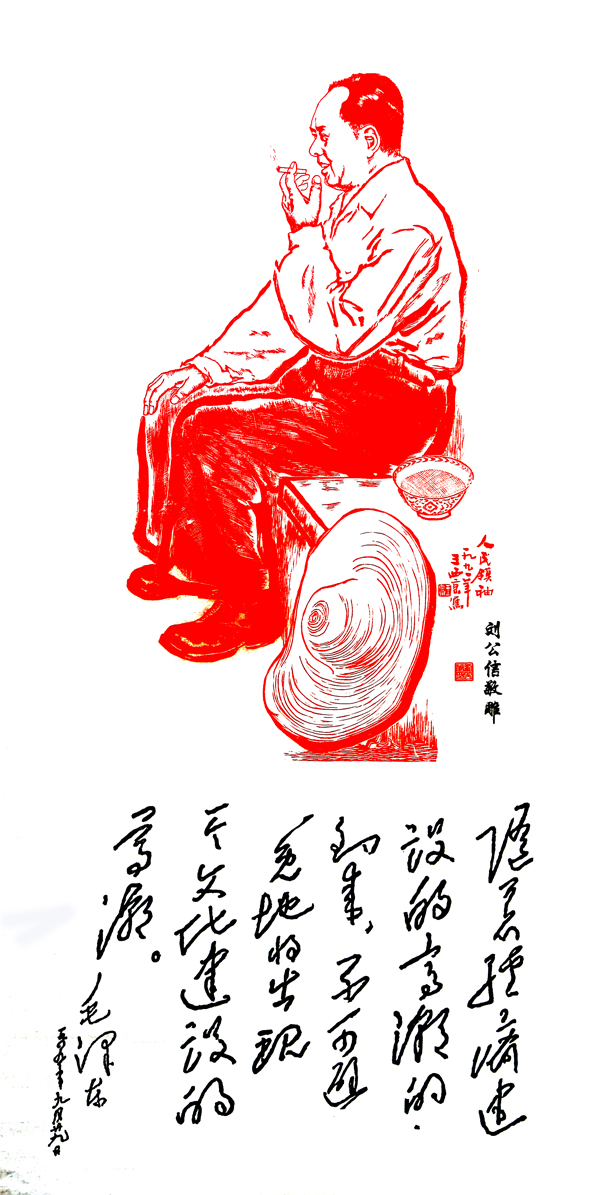 人民领袖
一九九一年
王西京写
刘公信敬雕
随着经济建
设的高潮的
到来，不可避
免地将出现
一个文化建设的
高潮。
毛泽东
九月廿九日